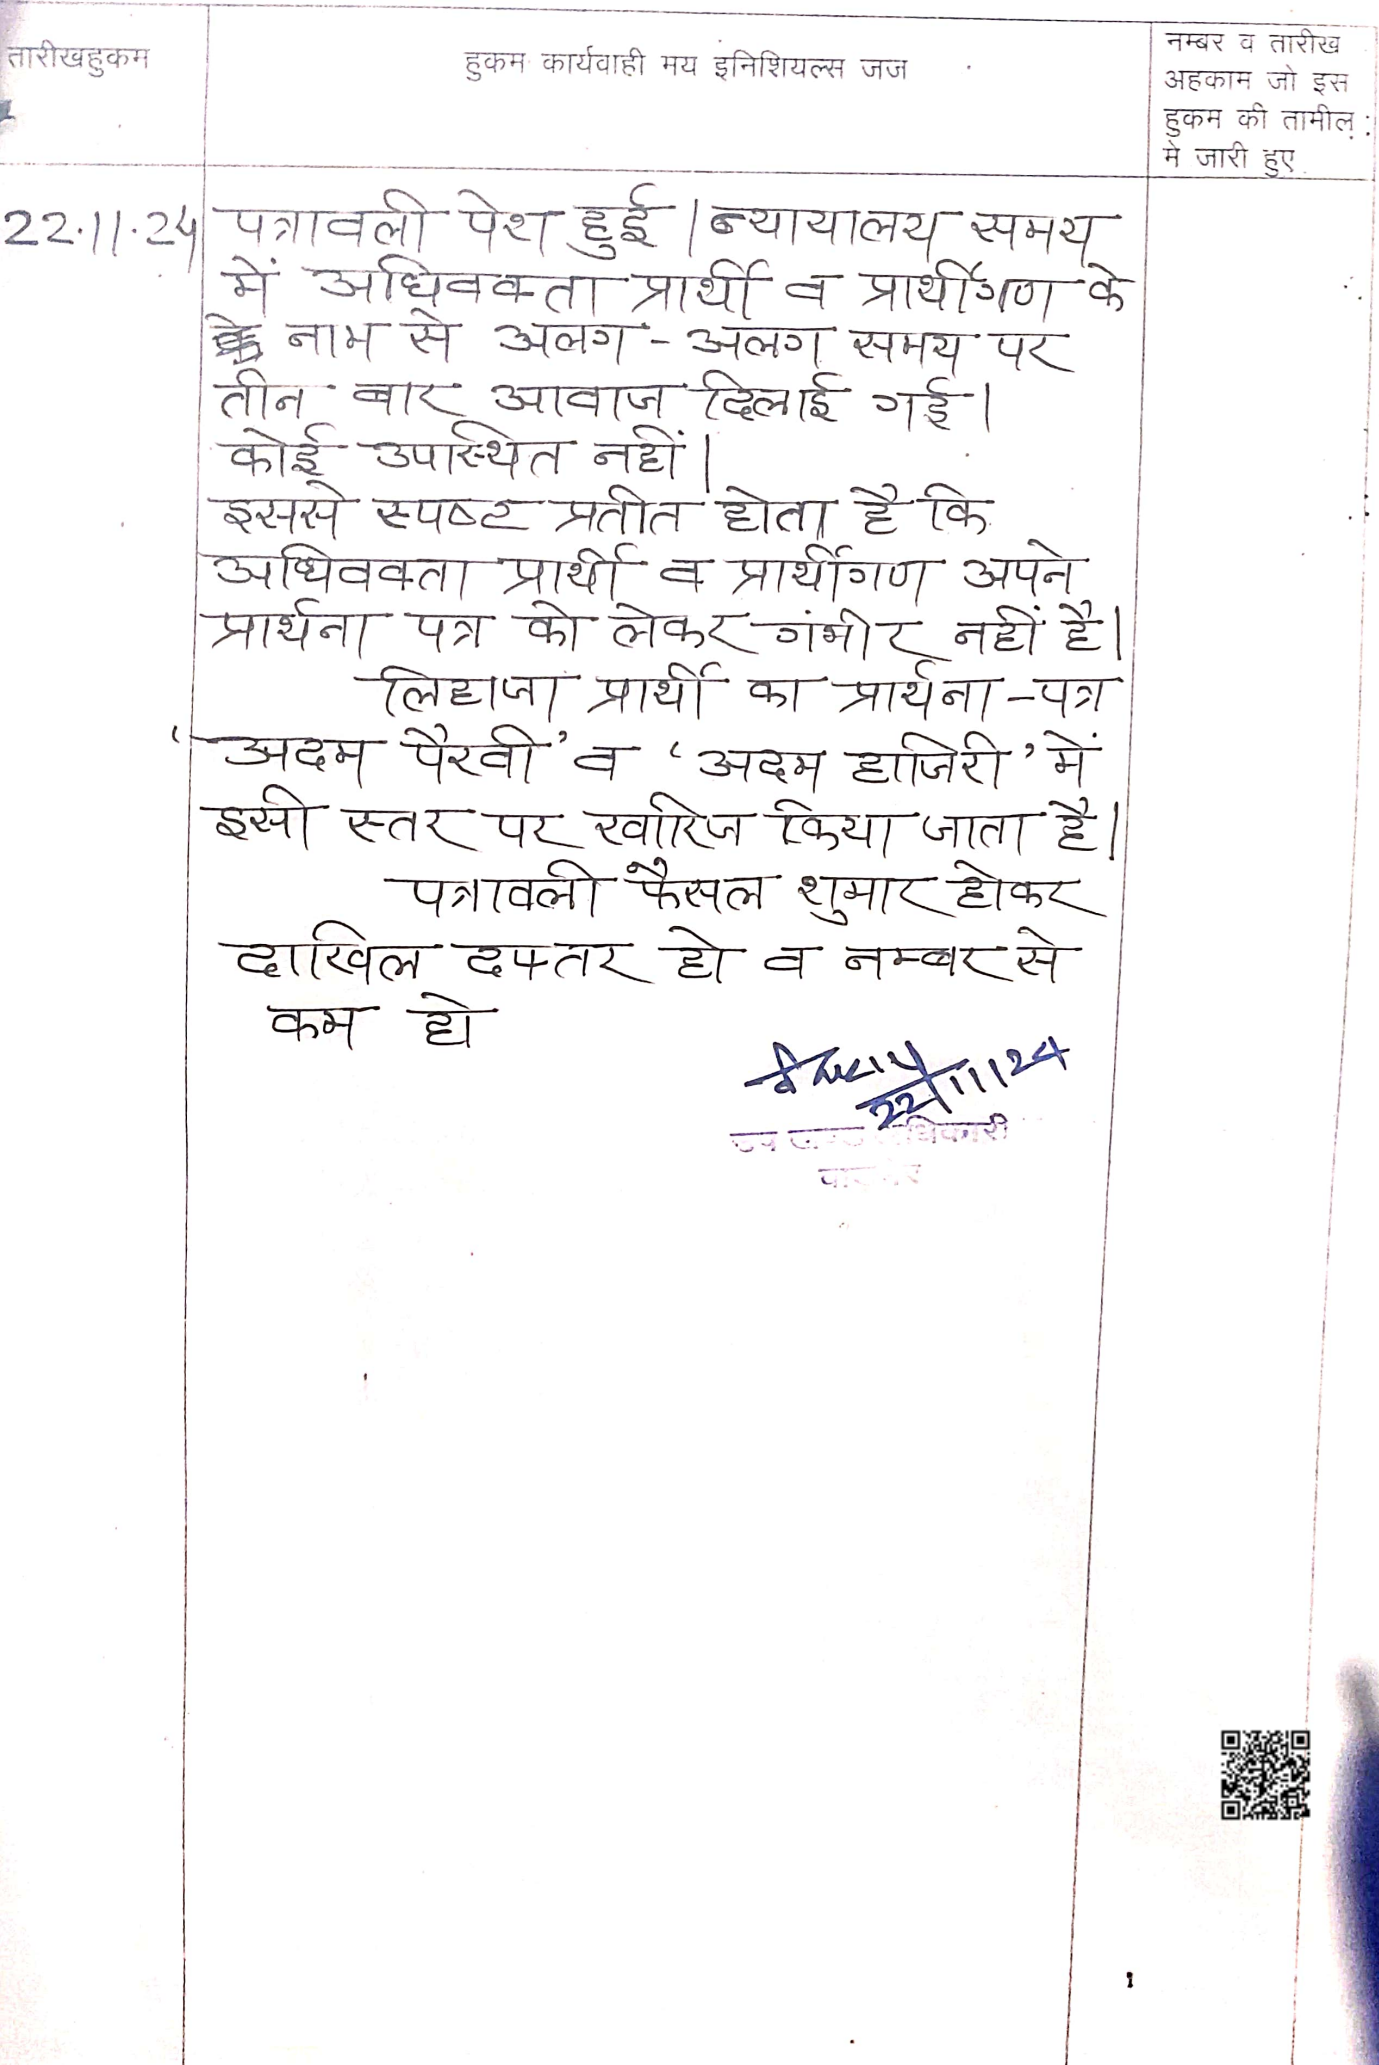 तारीखहुकम
हुकम कार्यवाही मय इनिशियल्स जज
नम्बर व तारीख
अहकाम जो इस
हुकम की तामील
मे जारी हुए
22.11.24
पत्रावली पेश हुई। न्यायालय समय
में अधिवक्ता प्रार्थी व प्रार्थीगण के
के नाम से अलग-अलग समय पर
तीन बार आवाज दिलाई गई।
कोई उपस्थित नहीं।
इससे स्पष्ट प्रतीत होता है कि
अधिवक्ता प्रार्थी व प्रार्थीगण अपने
प्रार्थना पत्र को लेकर गंभीर नहीं है।
लिहाजा प्रार्थी का प्रार्थना-पत्र
'अदम पैरवी' व 'अदम हाजिरी' में
इसी स्तर पर खारिज किया जाता है।
पत्रावली फैसल शुमार होकर
दाखिल दफ्तर हो व नम्बर से
कम हो
22/11/24